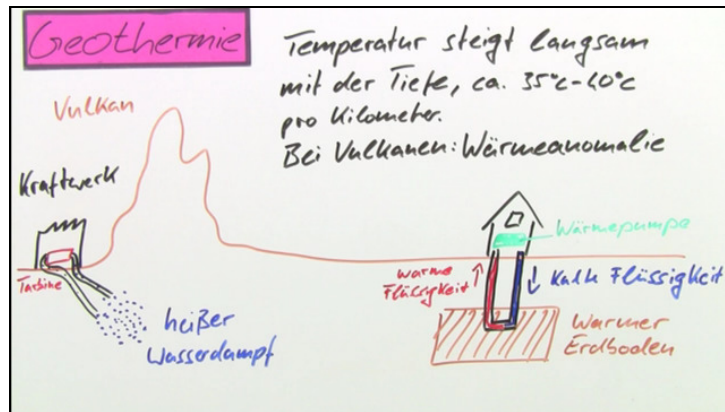 Geothermie
Temperatur steigt langsam
mit der Tiefe, ca. 35°C-40°C
pro Kilometer.
Bei Vulkanen: Wärmeanomalie
Vulkan
Kraftwerk
Turbine
heißer
Wasserdampf
Wärmepumpe
warme
Flüssigkeit
Kalte Flüssigkeit
Warmer
Erdboden